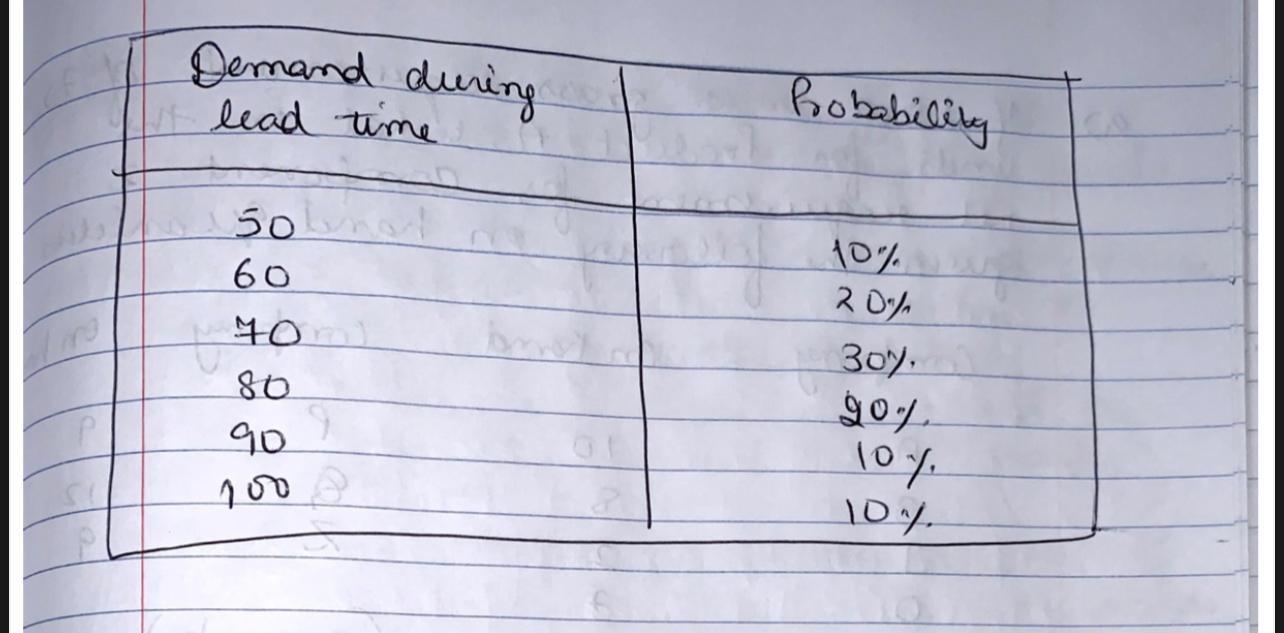 Demand during
lead time
Probability
50
10%.
60
20%.
70
30%.
80
20%.
90
10%.
100
10%.